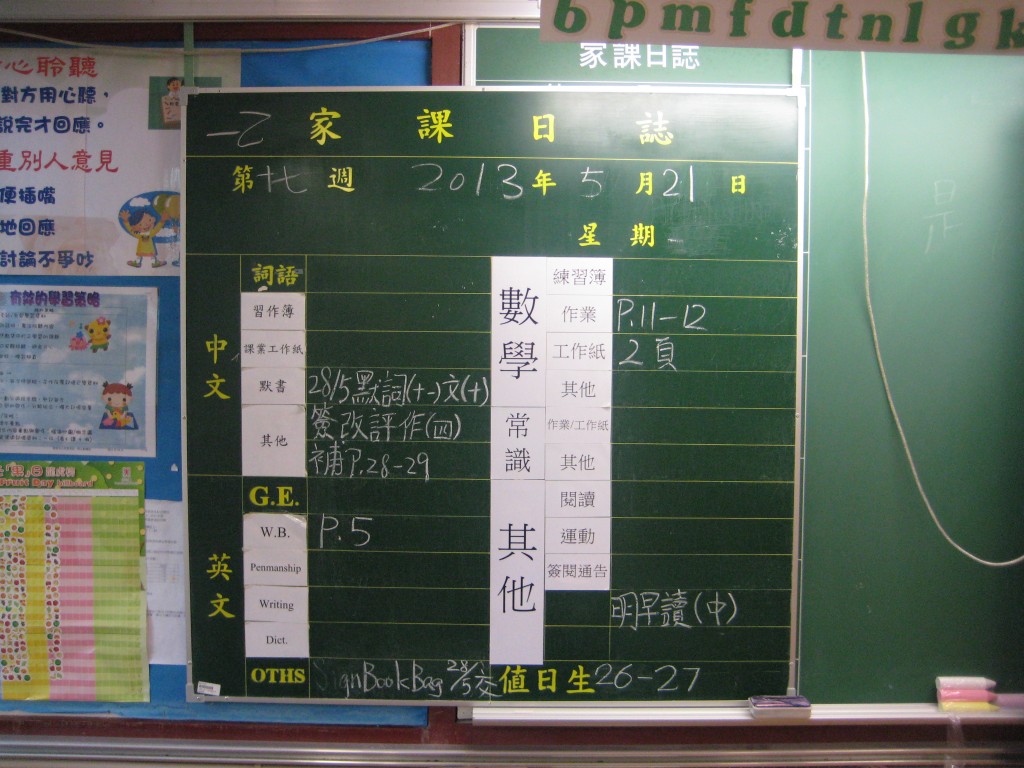 b p m f d t n l g k
家課日誌
心聆聽
對方用心聽，
說完才回應。
重別人意見
便插嘴
地回應
討論不爭吵
有效的學習策略
Fruit Day Billboard
一乙 家課日誌
第十七週 2013年5月21日
星期
中文
詞語
習作簿
課業工作紙
默書 28/5默詞(十一)文(十)
其他 簽改評作(四)
補P.28-29
英文
G.E.
W.B. P.5
Penmanship
Writing
Dict.
OTHS SignBookBag 28/5交
數學
練習簿
作業 P.11-12
工作紙 2頁
其他
常識
作業/工作紙
其他
其他
閱讀
運動
簽閱通告
明早讀(中)
值日生 26-27
是